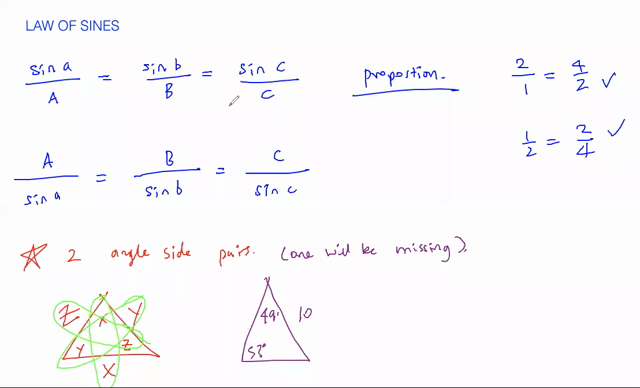 LAW OF SINES
sin a / A = sin b / B = sin c / C
proportion.
2/1 = 4/2 ✓
1/2 = 2/4 ✓
A / sin a = B / sin b = C / sin c
☆ 2 angle side pairs. (one will be missing).
Z X Y
Y Z
X
49° 10
53°